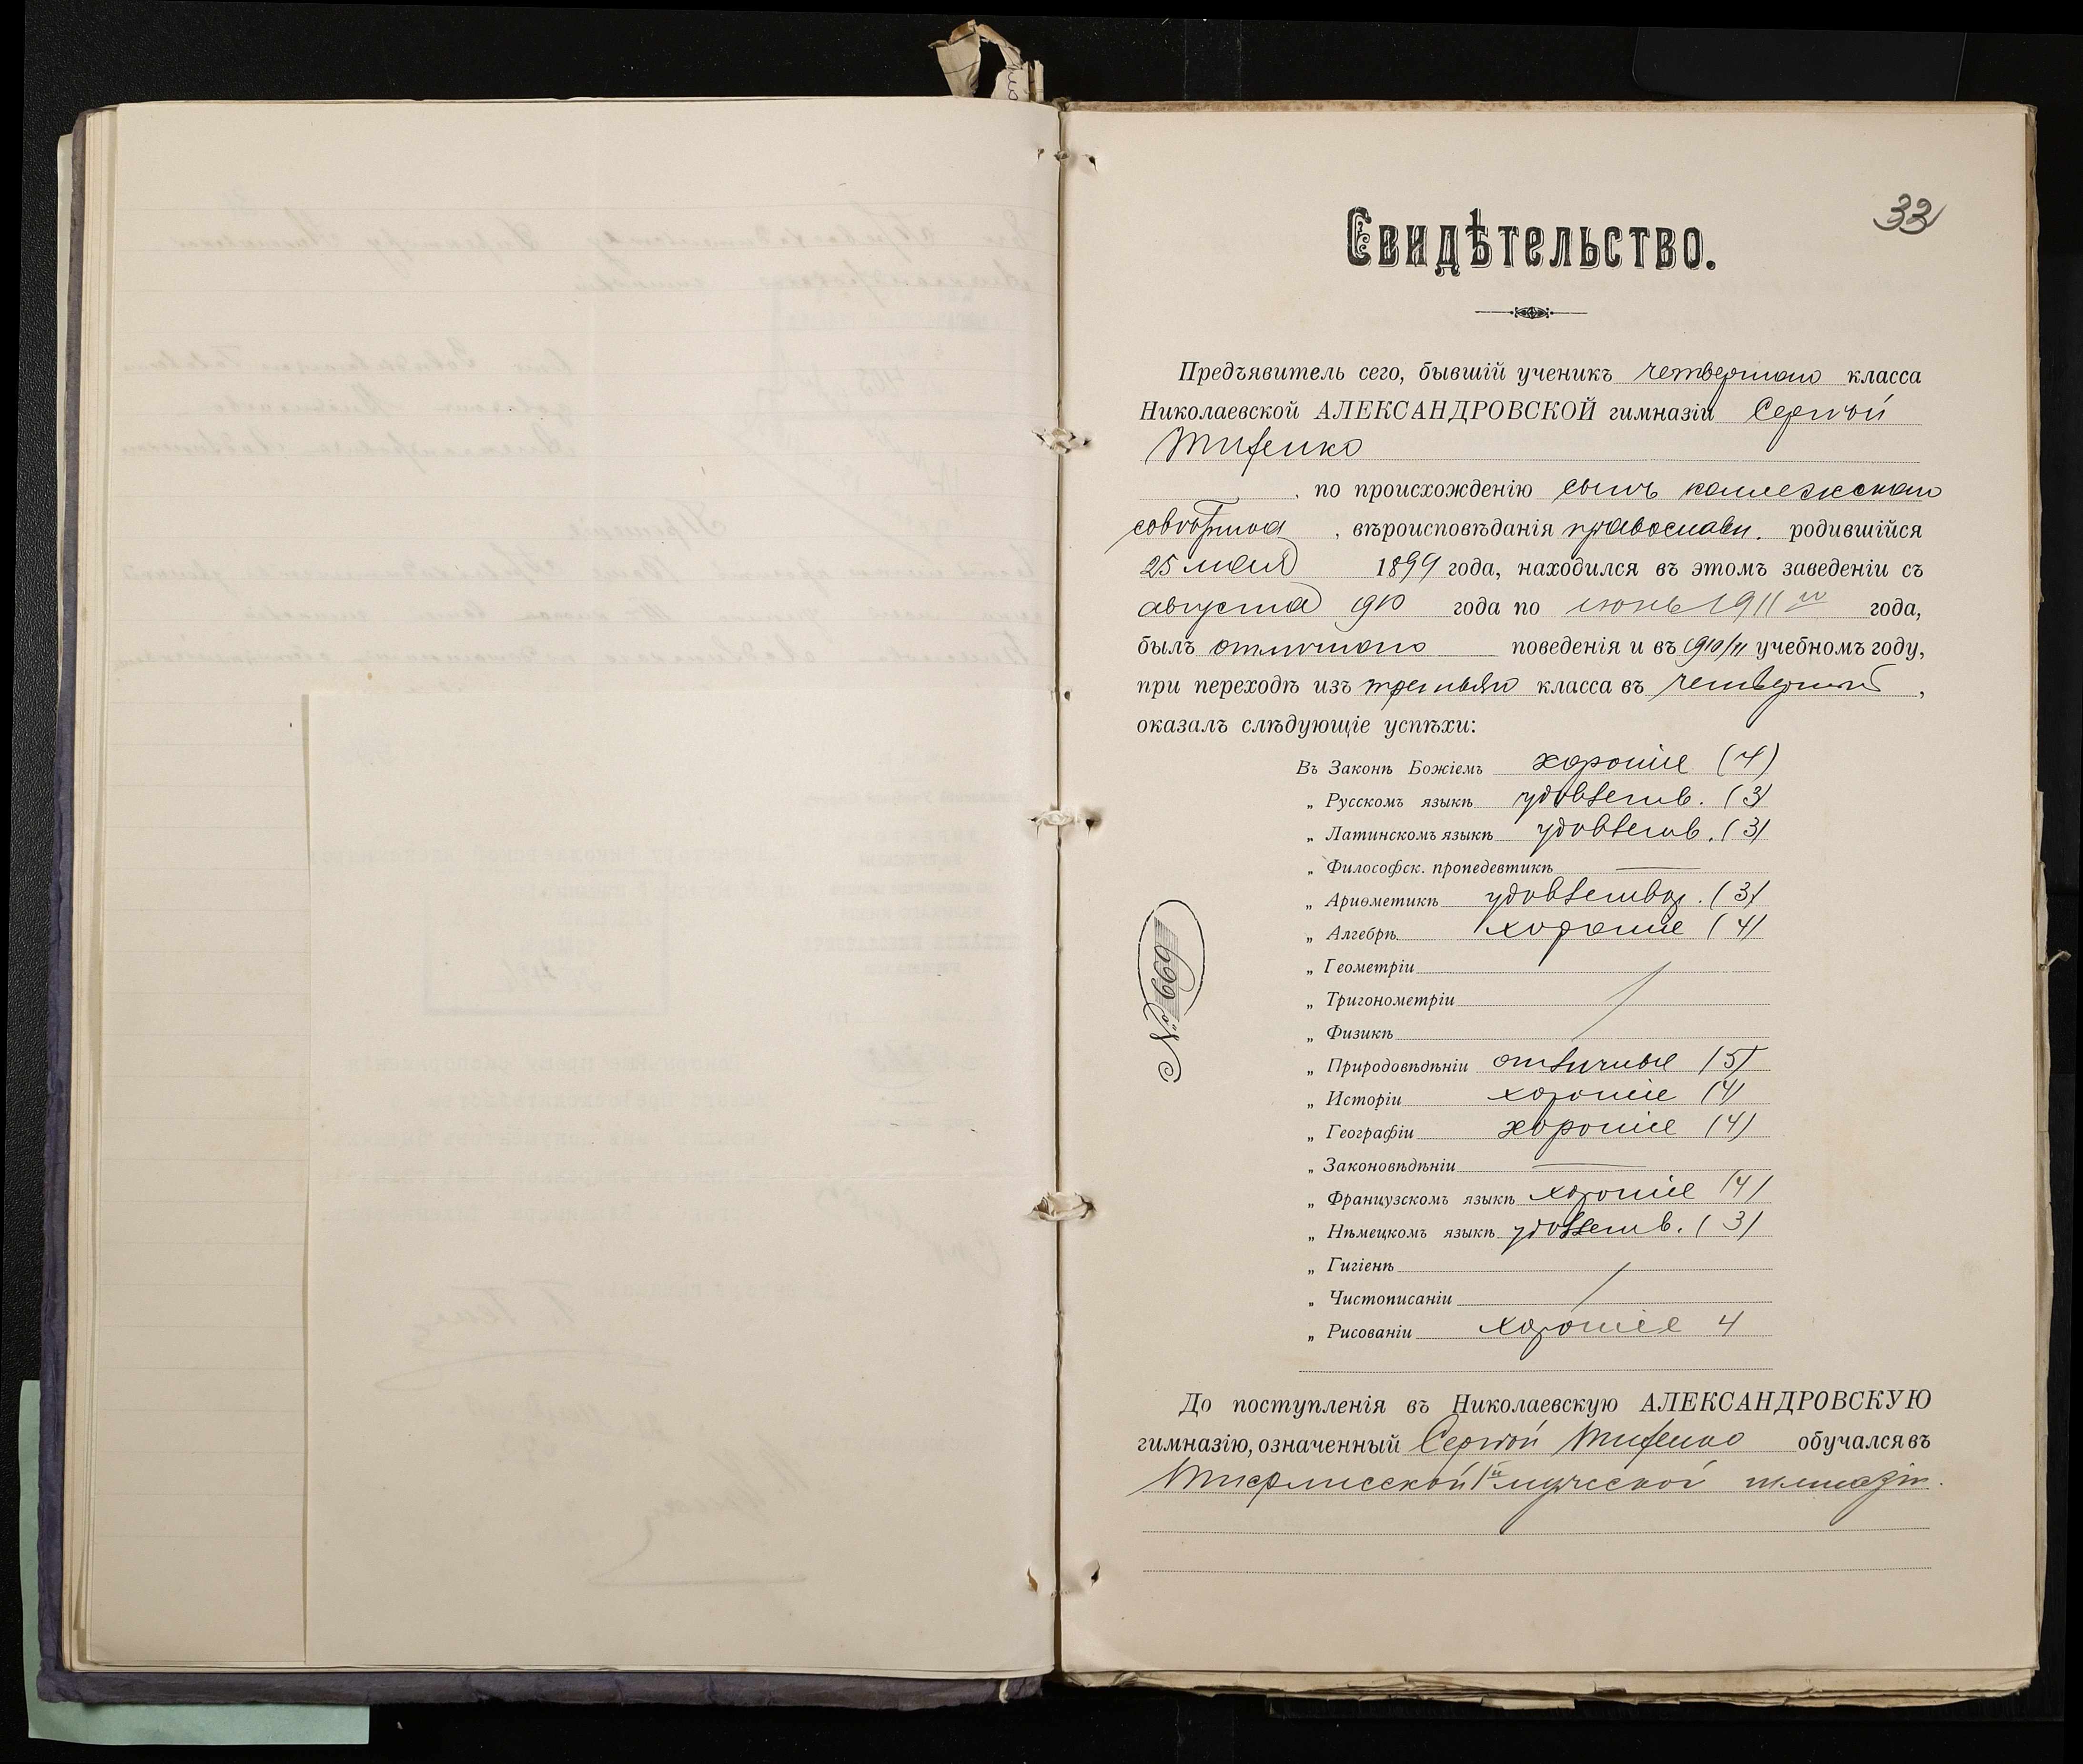 33
Свидѣтельство.
Предъявитель сего, бывшій ученикъ четвертаго класса
Николаевской АЛЕКСАНДРОВСКОЙ гимназіи Сергѣй
по происхожденію сынъ коллежскаго
совѣтника, вѣроисповѣданія православн. родившійся
25 мая 1899 года, находился въ этомъ заведеніи съ
августа 1910 года по іюнь 1911 года,
былъ отличнаго поведенія и въ 1910/11 учебномъ году,
при переходѣ изъ третьяго класса въ четвертый,
оказалъ слѣдующіе успѣхи:
Въ Законѣ Божіемъ хорошіе (4)
„ Русскомъ языкѣ удовлетв. (3)
„ Латинскомъ языкѣ удовлетв. (3)
„ Философск. пропедевтикѣ —
„ Ариѳметикѣ удовлетвор. (3)
„ Алгебрѣ хорошіе (4)
„ Геометріи
„ Тригонометріи
„ Физикѣ
„ Природовѣдѣніи отличные (5)
„ Исторіи хорошіе (4)
„ Географіи хорошіе (4)
„ Законовѣдѣніи —
„ Французскомъ языкѣ хорошіе (4)
„ Нѣмецкомъ языкѣ удовлетв. (3)
„ Гигіенѣ
„ Чистописаніи
„ Рисованіи хорошіе 4
№ 669
До поступленія въ Николаевскую АЛЕКСАНДРОВСКУЮ
гимназію, означенный Сергѣй обучался въ
Тифлисской 1й мужской гимназіи.